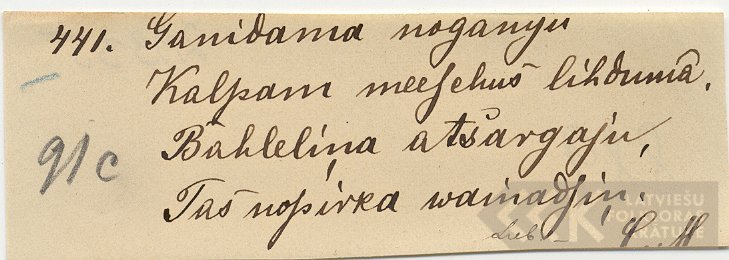 441. Ganidama noganyu
Kalpam meeschus lihdumâ,
91c
Bahleliņa atsargaju,
Tas nopirka wainadsiņ.
LATVIEŠU
FOLKLORAS
KRĀTUVE